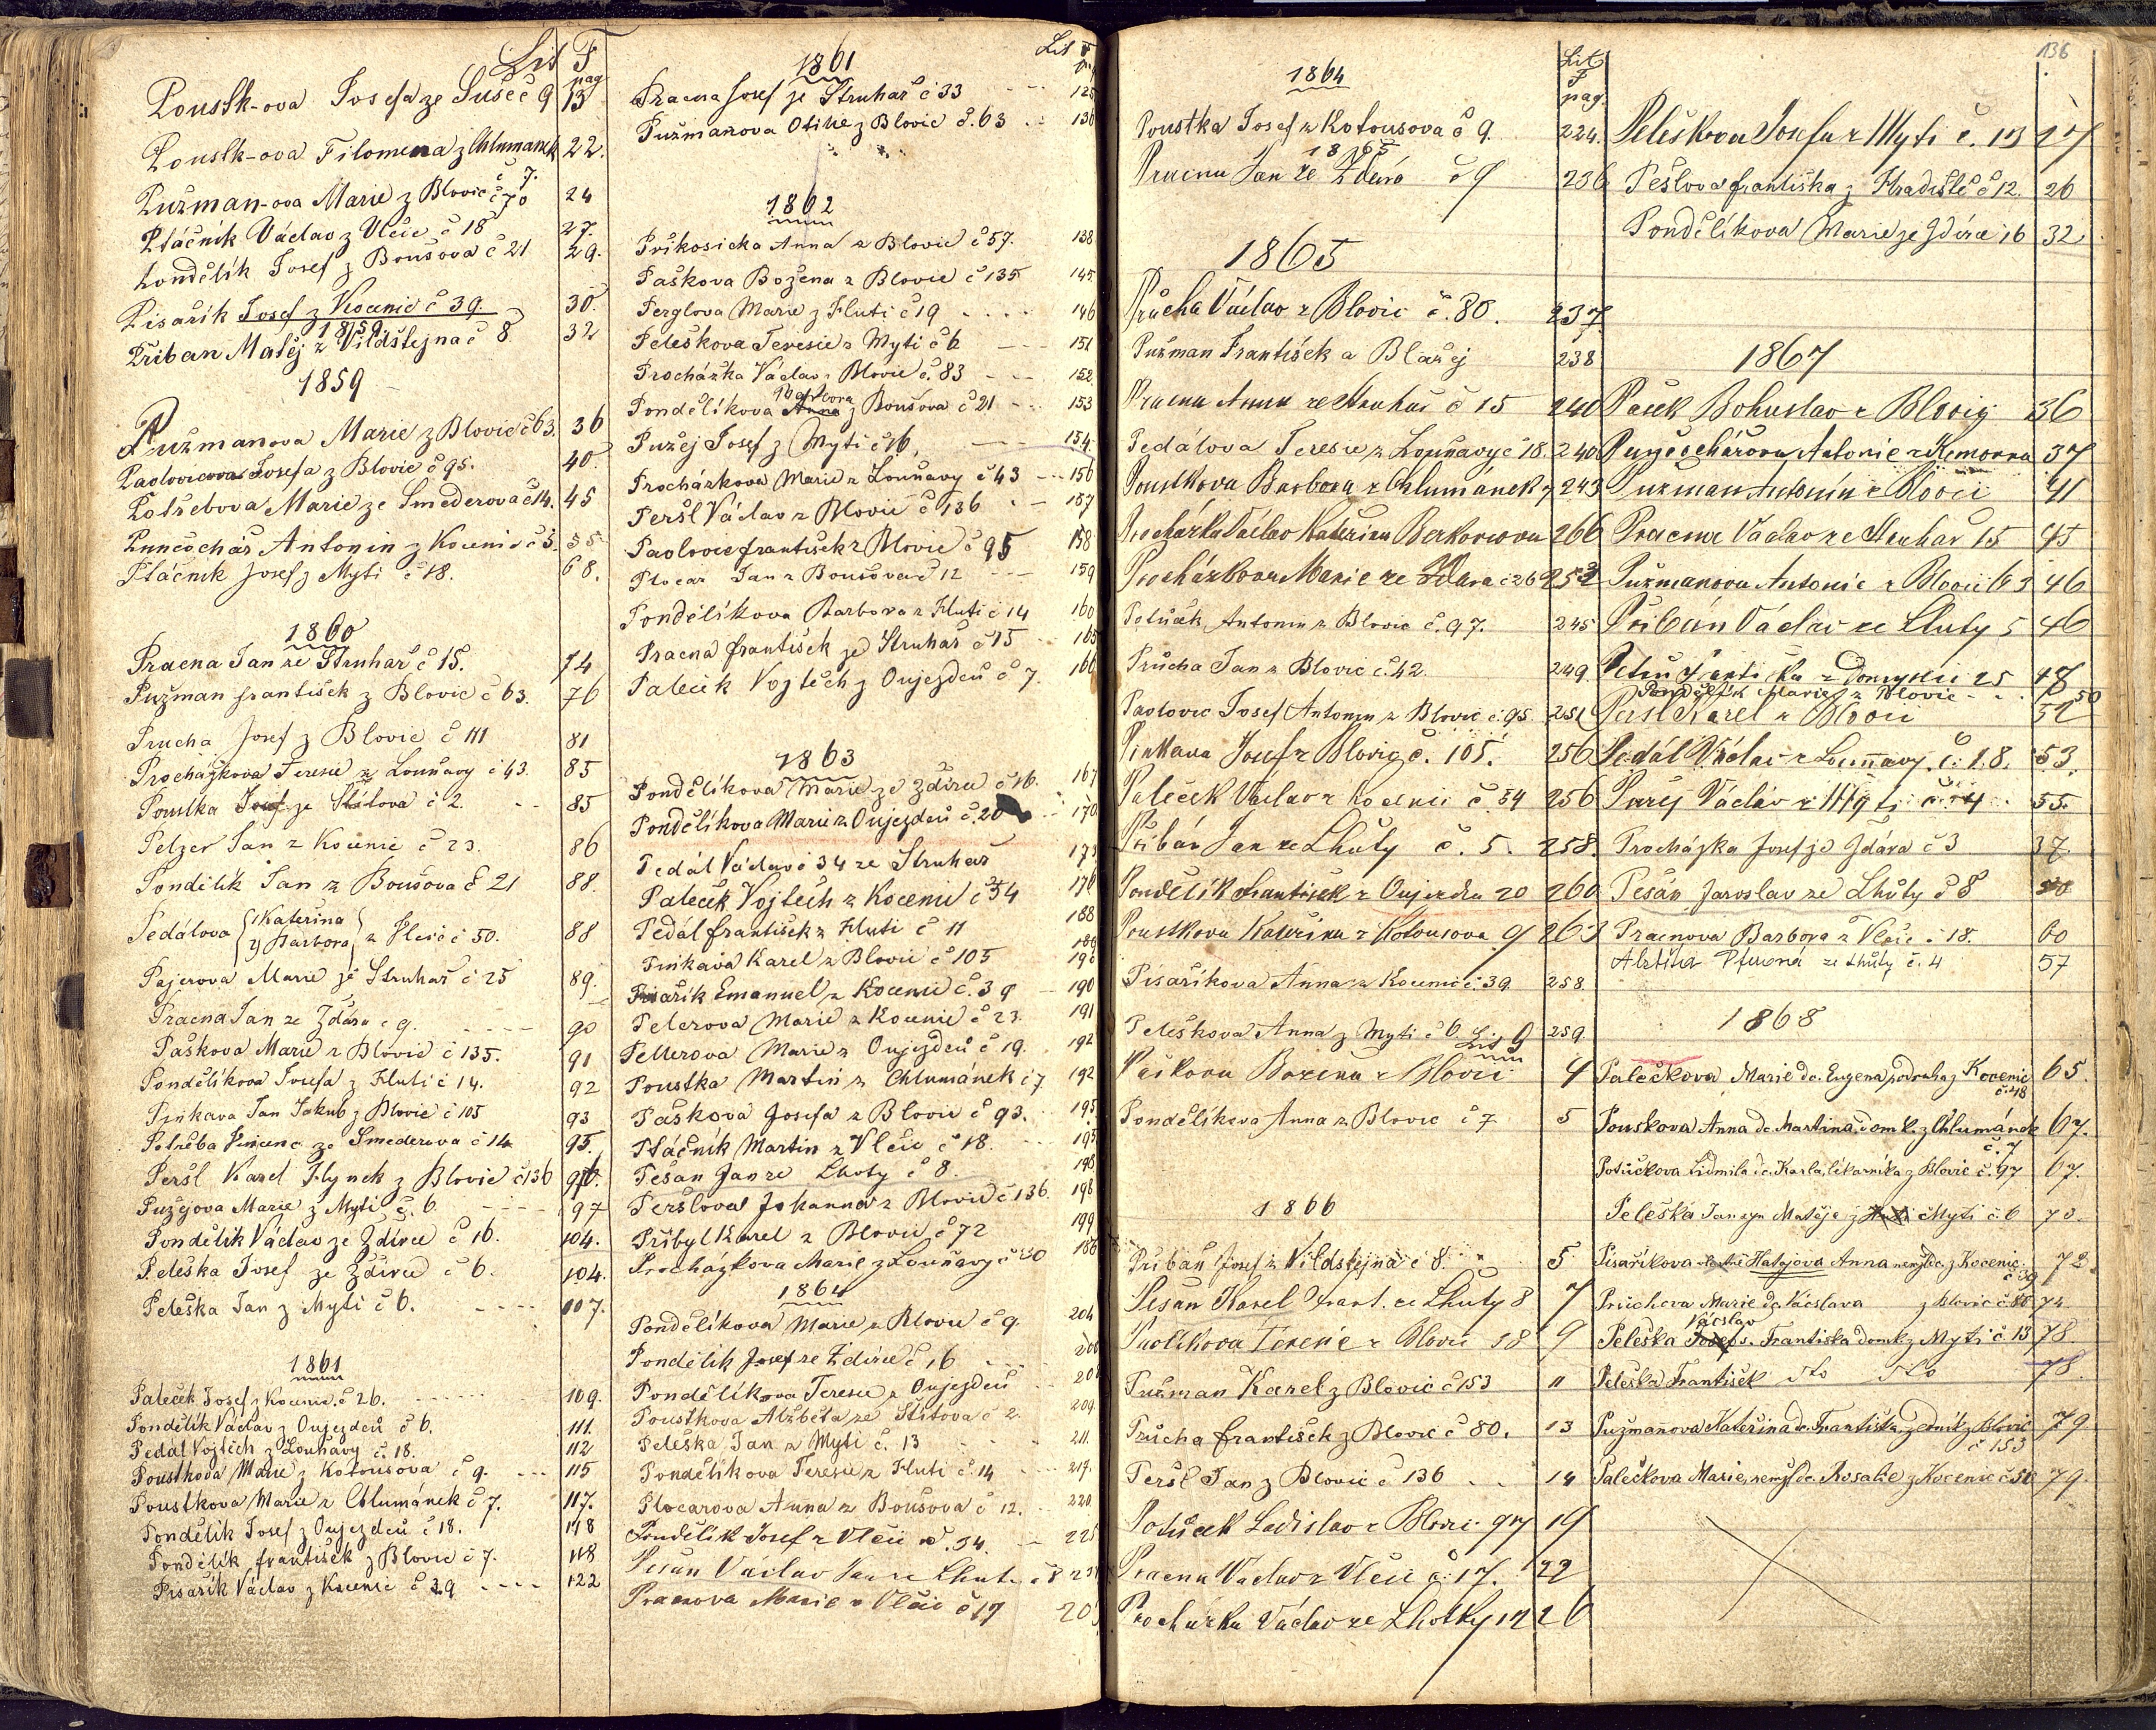 Lit F
pag
Poustk-ova Josefa ze Sušic č 9 13
Poustk-ova Filomena z Chlumanek 22.
č 7.
Pužman-ova Marie z Blovic č 70 24
Ptáčník Václav z Vlčic č 18 27.
Pondělík Josef z Boušova č 21 29.
Pisařík Josef z Kocenic č 39. 30.
1859
Přiban Matěj z Vildštejna č 8 32
1859
Pužmanova Marie z Blovic č 63. 36
Pavlovicova Josefa z Blovic č 95. 40.
Potřebova Marie ze Smederova č 14. 45
Punčochář Antonin z Kocenic č 3. 55
Ptáčník Josef z Myti č 18. 68.
1860
Pracna Jan ze Struhař č 15. 74
Pužman František z Blovic č 63. 76
Průcha Josef z Blovic č 111 81
Procházkova Teresie z Louňavy č 43. 85
Poustka Josef ze Štítova č 2. 85
Pelzer Jan z Kocenic č 23. 86
Pondělík Jan z Boušova č 21 88.
Pedálova Kateřina y Barbora z Vlčic č 50. 88
Pajerova Marie ze Struhař č 25 89.
Pracna Jan ze Zdáru č 9. 90
Paškova Marie z Blovic č 135. 91
Pondělíkova Josefa z Hluti č 14. 92
Pinkava Jan Jakub z Blovic č 105 93
Potřeba Vincenc ze Smederova č 14 95.
Peršl Karel Hynek z Blovic č 136 96.
Pužejova Marie z Myti č. 6. 97
Pondělík Václav ze Zdírce č 16. 104.
Peleška Josef ze Zdírce č 6. 104.
Peleška Jan z Myti č 6. 107.
1861
Paleček Josef z Kocenic č 26. 109.
Pondělík Václav z Oujezdců č 6. 111.
Pedál Vojtěch z Louňavy č. 18. 112
Poustkova Marie z Kotousova č 9. 115
Poustkova Marie z Chlumánek č 7. 117.
Pondělík Josef z Oujezdců č 18. 118
Pondělík František z Blovic č 7. 118
Pisařík Václav z Kocenic č 39 122
Lit F
1861
Pracna Josef ze Struhař č 33 125
Pužmanova Otilie z Blovic č. 63 136
1862
Příkosicka Anna z Blovic č 57. 138
Paškova Božena z Blovic č 135 145.
Perglova Marie z Hluti č 19 146
Peleškova Teresie z Myti č 6 151
Procházka Václav z Blovic č. 83 152
Barbora
Pondělíkova Anna z Boušova č 21 153
Pužej Josef z Myti č 16. 154.
Procházkova Marie z Louňavy č 43 156
Peršl Václav z Blovic č 136 157
Pavlovic František z Blovic č 95 158
Plocar Jan z Boušova č 12 159
Pondělíkova Barbora z Hluti č 14 160
Pracna František ze Struhař č 15 165
Paleček Vojtěch z Oujezdců č 7. 166
1863
Pondělíkova Marie ze Zdírce č 16. 167
Pondělíkova Marie z Oujezdců č. 20 170
Pedál Václav č 34 ze Struhař 173
Paleček Vojtěch z Kocenic č 34 176
Pedál František z Hluti č 11 188
189
Pinkava Karel z Blovic č 105 190
Pisařík Emanuel z Kocenic č. 39 190
Pelcrova Marie z Kocenic č 23. 191
Pellerova Marie z Oujezdců č 19. 192
Poustka Martin z Chlumánek č 7 192
Paškova Josefa z Blovic č 93. 195
Ptáčník Martin z Vlčic č 18. 195
Pešan Jan ze Lhoty č 8. 198
Peršlova Johanna z Blovic č 136. 198
Přibyl Karel z Blovic č 72 199
Procházkova Marie z Louňavy č 30 186
1864
Pondělíkova Marie z Blovic č 9. 204
Pondělík Josef ze Zdírce č 16
Pondělíkova Teresie z Oujezdců
Poustkova Alžběta ze Štítova č 2. 209
Peleška Jan z Myti č. 13 211.
Pondělíkova Teresie z Hluti č. 14 217.
Plocarova Anna z Boušova č 12. 220
Pondělík Josef z Vlčic č. 34. 225
Pešan Václav Jan ze Lhuty č 8
Pracnova Marie z Vlčic č 17
1864
Lit
F
pag.
Poustka Josef z Kotousova č 9. 224.
1865
Pracna Jan ze Zdáru č 9 236
1865
Průcha Václav z Blovic č. 80. 237
Pužman František a Blažej 238
Pracna Anna ze Struhař č 15 240
Pedálova Teresie z Louňavy č 18. 240
Poustkova Barbora z Chlumánek 7 243
Procházka Václav Kateřina Berkovcova 266
Procházkova Marie ze Zdara č 26 252
Potůček Antonin z Blovic č. 97. 245
Průcha Jan z Blovic č 42. 249.
Pavlovic Josef Antonin z Blovic č. 95. 251
Pinkava Josef z Blovic č. 105. 256
Paleček Václav z Kocenic č 34 256
Přibáň Jan ze Lhuty č. 5. 258.
Pondělík František z Oujezdu 20 260
Poustkova Kateřina z Kotousova 9 263
Pisaříkova Anna z Kocenic č. 39. 258.
Peleškova Anna z Myti č 6. 259.
Lit G
Paškova Božena z Blovic 4
Pondělíkova Anna z Blovic č 7 5
1866
Přibáň Josef z Vildštejna č 8. 5
Pešan Karel Frant. ze Lhuty 8 7
Pavlíkova Terezie z Blovic 18 9
Pužman Karel z Blovic č 153 11
Průcha František z Blovic č 80. 13
Peršl Jan z Blovic č 136 14
Potůček Ladislav z Blovic 97 19
Pracna Václav z Vlčic č. 17. 22
Procházka Václav ze Lhotky 12 26
136
Peleškova Josefa z Myti č. 13 27
Pešlova Františka z Hradiště č 12. 26
Pondělíková Marie ze Zdírce 16 32
1867
Pašek Bohuslav z Blovic 36
Punčochářova Antonie z Komorna 37
Pužman Antonín z Blovic 41
Pracna Václav ze Struhař 15 45
Pužmanova Antonie z Blovic 63 46
Přibáň Václav ze Lhuty 5 46
Petrů Františka z Domyslic 25 48
Pondělík Marie z Blovic 50
Peršl Karel z Blovic 52
Pedál Václav z Louňavy č. 18. 53.
Pužej Václav z Myti č. 4. 55.
Procházka Josef ze Zdára č 3 37.
Pešán Jaroslav ze Lhůty č 8
Pracnova Barbora z Vlčic č 18. 60
ze Lhůty č. 4 57
1868
Palečková Marie dc. Eugena, podruha z Kocenic 65.
č. 18
Pouskova Anna dc. Martina, domk. z Chlumánek 67.
č. 7
Potůčkova Lidmila dc. Karla, lékarníka z Blovic č. 97 67.
Peleška Jan syn Matěje z Myti č. 6 70.
Pisaříkova Hatajova Anna nemž. dc. z Kocenic 72
č 39
Průchova Marie dc. Václava z Blovic č 80 74
Václav
Peleška Josef s. Františka domk. z Myti č. 13 78.
Peleška František dto dto 78.
Pužmanova Kateřina dc. Františka, zedník z Blovic 79
č 153
Palečkova Marie, nemž. dc. Rosalie z Kocenic č 50 79.